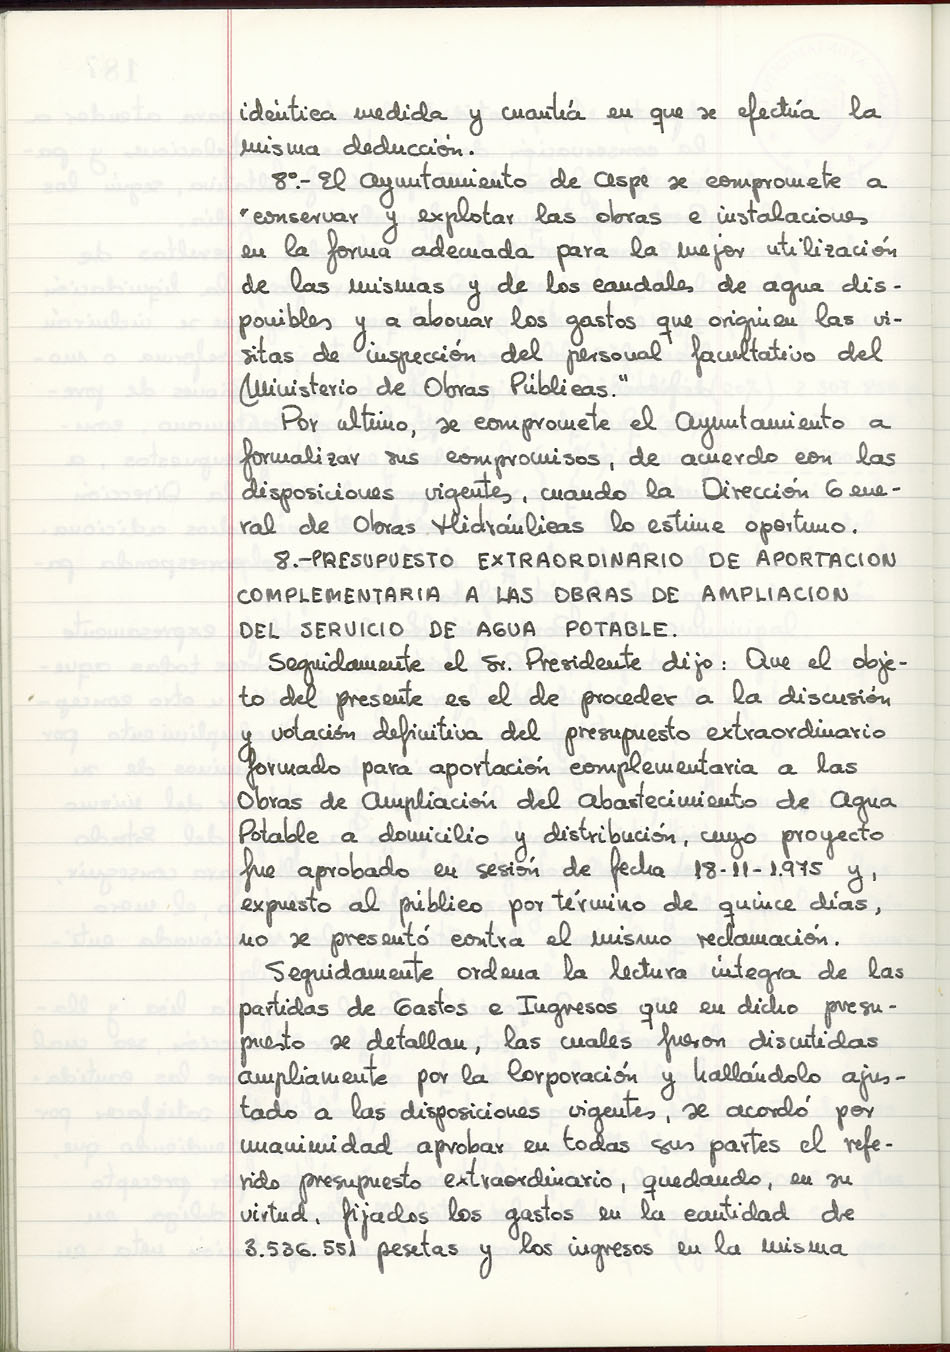 idéntica medida y cuantía en que se efectúa la
misma deducción.
8º.- El Ayuntamiento de Aspe se compromete a
"conservar y explotar las obras e instalaciones
en la forma adecuada para la mejor utilización
de las mismas y de los caudales de agua dis-
ponibles y a abonar los gastos que originen las vi-
sitas de inspección del personal facultativo del
Ministerio de Obras Públicas."
Por último, se compromete el Ayuntamiento a
formalizar sus compromisos, de acuerdo con las
disposiciones vigentes, cuando la Dirección Gene-
ral de Obras Hidráulicas lo estime oportuno.
8.-PRESUPUESTO EXTRAORDINARIO DE APORTACION
COMPLEMENTARIA A LAS OBRAS DE AMPLIACION
DEL SERVICIO DE AGUA POTABLE.
Seguidamente el Sr. Presidente dijo: Que el obje-
to del presente es el de proceder a la discusión
y votación definitiva del presupuesto extraordinario
formado para aportación complementaria a las
Obras de Ampliación del Abastecimiento de Agua
Potable a domicilio y distribución, cuyo proyecto
fue aprobado en sesión de fecha 18-11-1.975 y,
expuesto al público por término de quince días,
no se presentó contra el mismo reclamación.
Seguidamente ordena la lectura íntegra de las
partidas de Gastos e Ingresos que en dicho presu-
puesto se detallan, las cuales fueron discutidas
ampliamente por la Corporación y hallándolo ajus-
tado a las disposiciones vigentes, se acordó por
unanimidad aprobar en todas sus partes el refe-
rido presupuesto extraordinario, quedando, en su
virtud, fijados los gastos en la cantidad de
3.536.551 pesetas y los ingresos en la misma